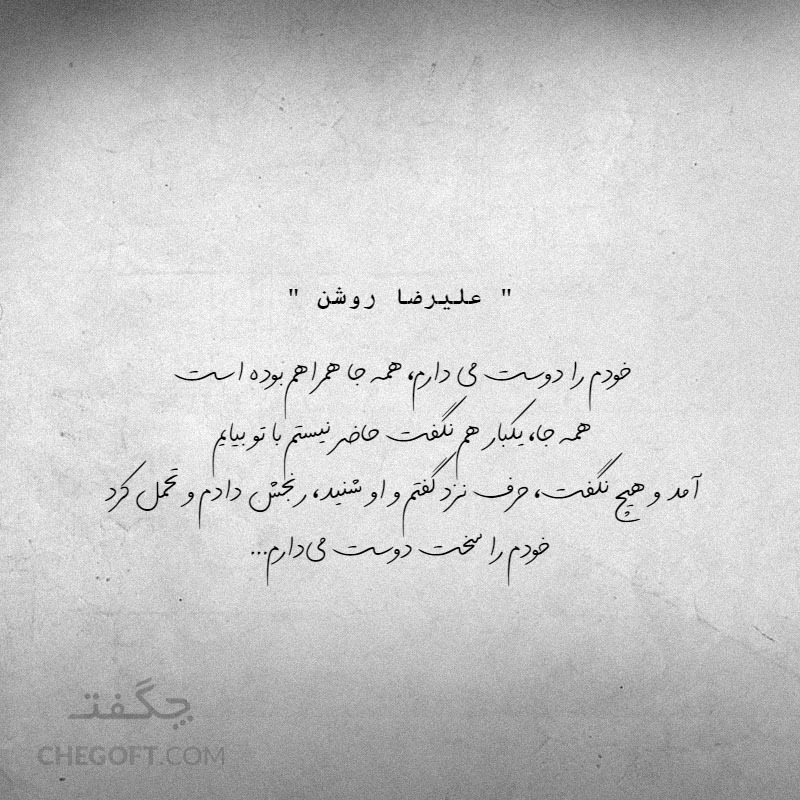 " علیرضا روشن "
خودم را دوست می دارم، همه جا همراهم بوده است
همه جا، یکبار هم نگفت حاضر نیستم با تو بیایم
آمد و هیچ نگفت، حرف نزد گفتم و او شنید، رنجش دادم و تحمل کرد
خودم را سخت دوست می‌دارم...
چگفتـ
CHEGOFT.COM